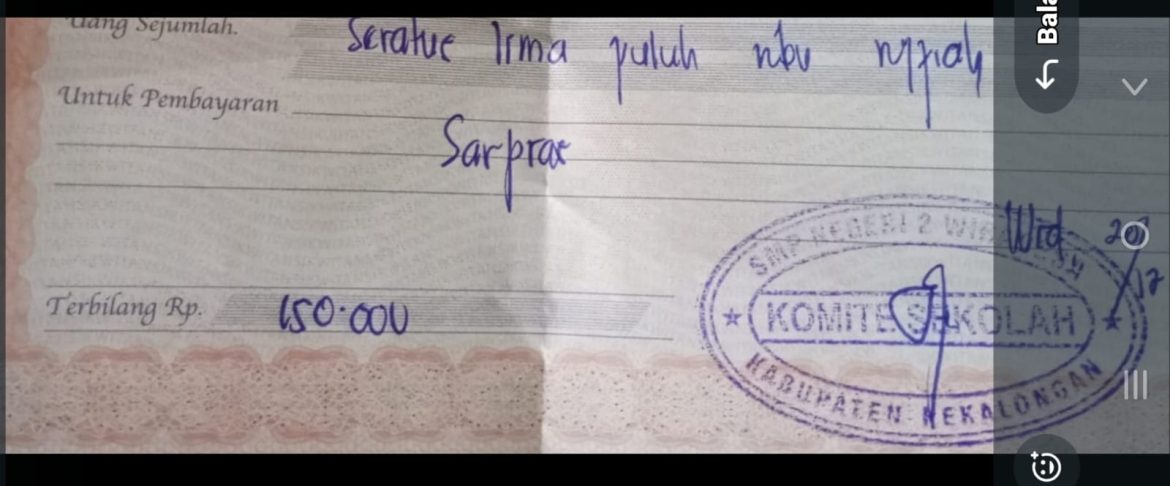 Uang Sejumlah.
Seratus lima puluh ribu rupiah
Untuk Pembayaran
Sarpras
Terbilang Rp.
150.000
SMP NEGERI 2
KOMITE SEKOLAH
KABUPATEN PEKALONGAN
Wrd
Bala